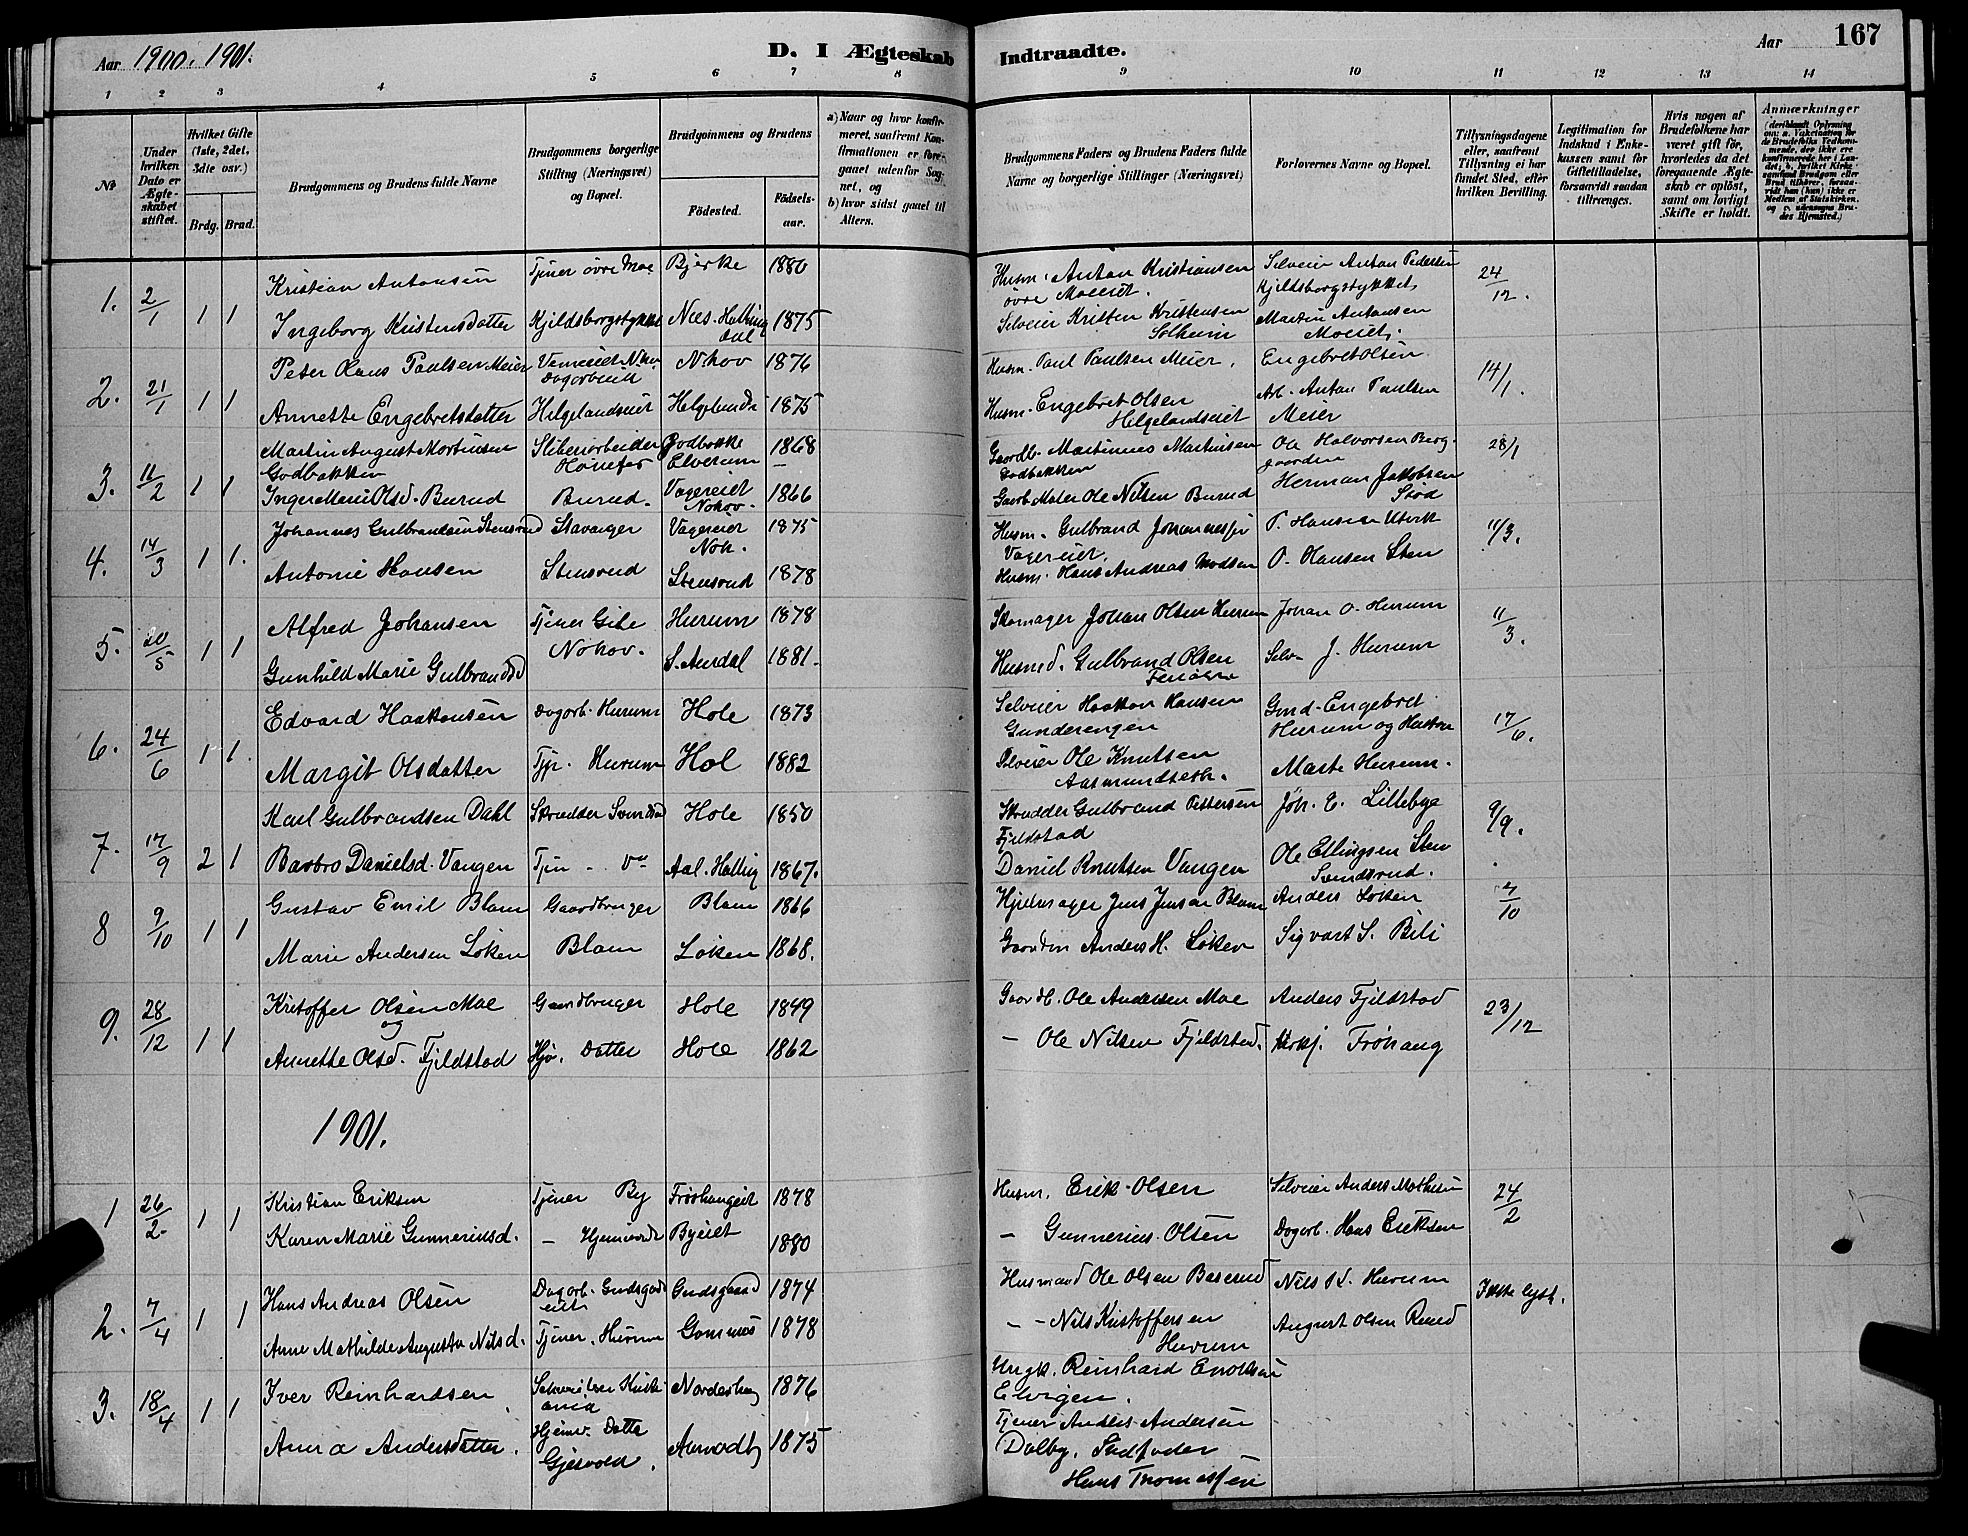 Aar 1900. 1901.
D. I Ægteskab Indtraadte.
Aar 167
1 2 3 4 5 6 7 8 9 10 11 12 13 14
No
Under hvilken Dato er Ægteskabet stiftet.
Hvilket Gifte (1ste, 2det, 3die osv.)
Brdg. Brud.
Brudgommens og Brudens fulde Navne
Brudgommens borgerlige Stilling (Næringsvei) og Bopæl.
Brudgommens og Brudens
Fødested.
Fødsels-aar.
a) Naar og hvor konfirmeret, saafremt Konfirmationen er foregaaet udenfor Sognet, og
b) hvor sidst gaaet til Alters.
Brudgommens Faders og Brudens Faders fulde Navne og borgerlige Stillinger (Næringsvei)
Forlovernes Navne og Bopæl.
Tillysningsdagene eller, saafremt Tillysning ei har fundet Sted, efter hvilken Bevilling.
Legitimation for Indskud i Enkekassen samt for Giftetilladelse, forsaavidt saadan tiltrænges.
Hvis nogen af Brudefolkene har været gift før, hvorledes da det foregaaende Ægteskab er opløst, samt om lovligt Skifte er holdt.
Anmærkninger
1. 2/1 1 1 Kristian Antonsen Tjener øvre Moe Bjerke 1880 Husm. Anton Kristiansen øvre Moeeiet. Selveier Anton Pedersen Kjeldsborgstykket 24/12.
Ingeborg Kristensdatter Kjeldsborgstykket Næs. Hallingdal 1875 Selveier Kristen Kristensen Solheim Martin Antonsen Moeeiet.
2. 21/1 1 1 Peter Olaus Paulsen Meier Dagarbeid N.hov 1876 Husm. Paul Paulsen Meier. Engebret Olsen 14/1.
Annette Engebretsdatter Helgelandseiet Helgelands 1875 Husm. Engebret Olsen Helgelandseiet Arb. Anton Paulsen Meier
3. 11/2 1 1 Martin August Martinsen Godbakken Sliberiarbeider Hønefos Godbakke Elverum 1868 Gaardb. Martinnes Martinsen Godbakken Ole Halvorsen Berggaarden 28/1
Inger Marie Olsd. Burud Burud Vagereiet Nohov. 1866 Maler Ole Nilsen Burud Herman Jakobsen Stod
4. 14/3 1 1. Johannes Gulbrandsen Stensrud Stavanger Vagereiet Noh. 1875 Husm. Gulbrand Johannessen Vagereiet. P. Hansen Utvik 11/3.
Antonie Hansen Stensrud Stensrud 1878 Husm. Hans Andreas Madsen O. Hansen Sten
5. 20/5 1 1 Alfred Johansen Tjener Gile Nohov. Hurum 1878 Skomager Johan Olsen Hurum Johan O. Hurum 11/3.
Gunhild Marie Gulbrandsd S. Aurdal 1881. Gulbrand Olsen Selv. J. Hurum
6. 24/6 1 1. Edvard Haakonsen Dagarb. Hurum Hole 1873 Selveier Haakon Hansen Gunderengen Gmd. Engebret Hurum og 17/6.
Margit Olsdatter Tjp. Hurum Hol 1882 Selveier Ole Knutsen Marte Hurum.
7. 17/9 2 1 Karl Gulbrandsen Dahl Skrædder Hole 1850 Skrædder Gulbrand Pettersen Fjeldstad Joh. E. Lillebye 9/9.
Barbro Danielsd. Vangen Tjen Aal. Halling 1867. Daniel Knutsen Vangen Ole Ellingsen Sten Sundsrud.
8 9/10 1 1 Gustav Emil Blam Gaardbruger Blam 1866 Hjulmager Jens Jensen Blam Anders Løken 7/10
Marie Andersen Løken Blam Løken 1868. Gaardm Anders H. Løken Sigvart S. Bili
9. 28/12 1 1 Kristoffer Olsen Moe og Gaardbruger Hole 1849 Gaardb. Ole Andersen Moe Anders Fjeldstad 23/12
Annette Olsd. Fjeldstad Hjv. Datter Hole 1862 — Ole Nilsen Fjeldstad. Kirkj. Frøhaug
1901.
1 26/2. 1 1 Kristian Eriksen Tjener By Frøshaugeiet 1878 Husm. Erik Olsen Selveier Anders Mathisen 24/2
Karen Marie Gunneriusd. — Hjemværde Byeiet 1880 — Gunnerius Olsen Dagarb. Hans Eriksen
2. 7/4 1 1 Hans Andreas Olsen Dagarb. Gudsgaardeiet Gudsgaard 1874 Husmand Ole Olsen Baserud Nils H. Hurum Ikke lyst.
Anne Mathilde Augusta Nilsd. Tjener. Hurum Gomnæs 1878 — Nils Kristoffersen Hurum August Olsen Rund
3. 18/4 1 1 Iver Reinhardsen Kristiania Norderhov 1876 Ungk. Reinhard Enoksen Elvigen.
Anna Andersdatter. Hjemv. Datter Gjesvold. 1875 Tjener Anders Andersen Dalby. Stedfader Hans Thomessen